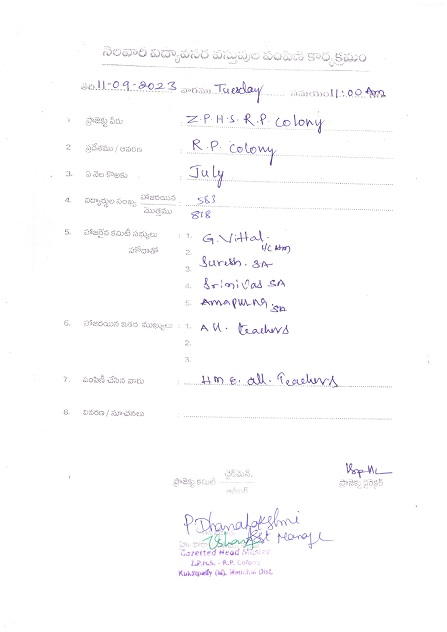 నెలవారి విద్యావసర వస్తువుల పంపిణి కార్యక్రమం
తేది. 11-09-2023 వారము Tuesday సమయం 11:00 Am
1 ప్రాజెక్టు పేరు : Z.P.H.S. R.P. Colony
2 ప్రదేశము / ఆవరణ : R.P. Colony
3. ఏ నెల కొరకు : July
4. విద్యార్థుల సంఖ్య హాజరయిన : 563
మొత్తము 818
5. హాజరైన కమిటీ సభ్యులు : 1. G. Vittal.
హోదాతో 2. I/c Hm
3 Suresh. SA
4 Srinivas SA
5 Annapurna SA
6. హాజరయిన ఇతర ముఖ్యులు : 1 All. Teachers
2.
3.
7. పంపిణి చేసిన వారు : HM & all. Teachers
8. వివరణ / సూచనలు :
చైర్మన్,
ప్రాజెక్టు కమిటీ ప్రాజెక్టు డైరెక్టర్
P Dhanalakshmi
Asst Manager
Gazetted Head Master
Z.P.H.S. - R.P. Colony